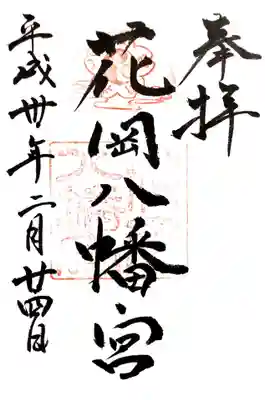 奉拝
花岡八幡宮
平成卅年二月廿四日